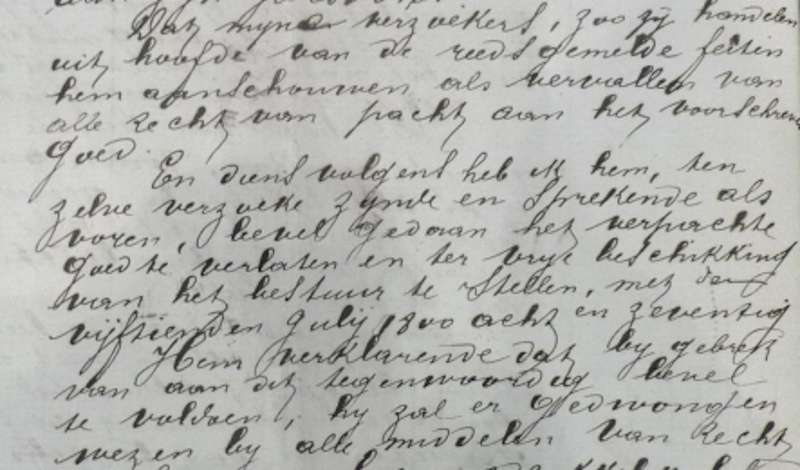 Dat myne verzoekers, zoo zy handelen
uit hoofde van de reeds gemelde feiten
hem aanschouwen als vervallen van
alle recht van pacht aan het voorschreven
goed.
En diensvolgens heb ik hem, ten
zelve verzoeke zynde en sprekende als
voren, bevel gedaan het verpachte
goed te verlaten en ter vrye beschikking
van het bestuur te stellen, met den
vijftienden July 1800 acht en zeventig
Hem verklarende dat by gebrek
van aan dit tegenwoordig bevel
te voldoen, hy zal er gedwongen
wezen by alle middelen van recht